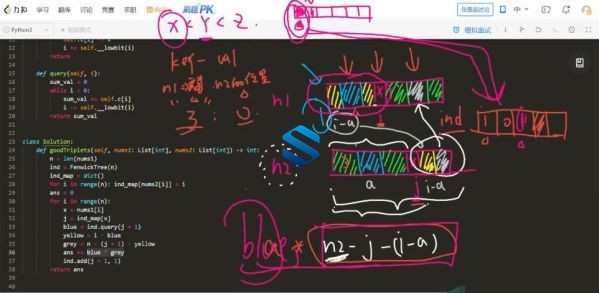 力扣 学习 题库 讨论 竞赛 求职 刷题PK
Python3
模拟面试
X < Y < Z.
12
13 i += self.__lowbit(i)
14 return
15
16 def query(self, i):
17 sum_val = 0
18 while i > 0:
19 sum_val += self.c[i]
20 i -= self.__lowbit(i)
21 return sum_val
22
23 class Solution:
24 def goodTriplets(self, nums1: List[int], nums2: List[int]) -> int:
25 n = len(nums1)
26 ind = FenwickTree(n)
27 ind_map = dict()
28 for i in range(n): ind_map[nums2[i]] = i
29 ans = 0
30 for i in range(n):
31 x = nums1[i]
32 j = ind_map[x]
33 blue = ind.query(j + 1)
34 yellow = i - blue
35 grey = n - (j + 1) - yellow
36 ans += blue * grey
37 ind.add(j + 1, 1)
38 return ans
key-val
3 : 0
n1
(i-a)
ind
n2
a
i-a
blue * n2-j-(i-a)